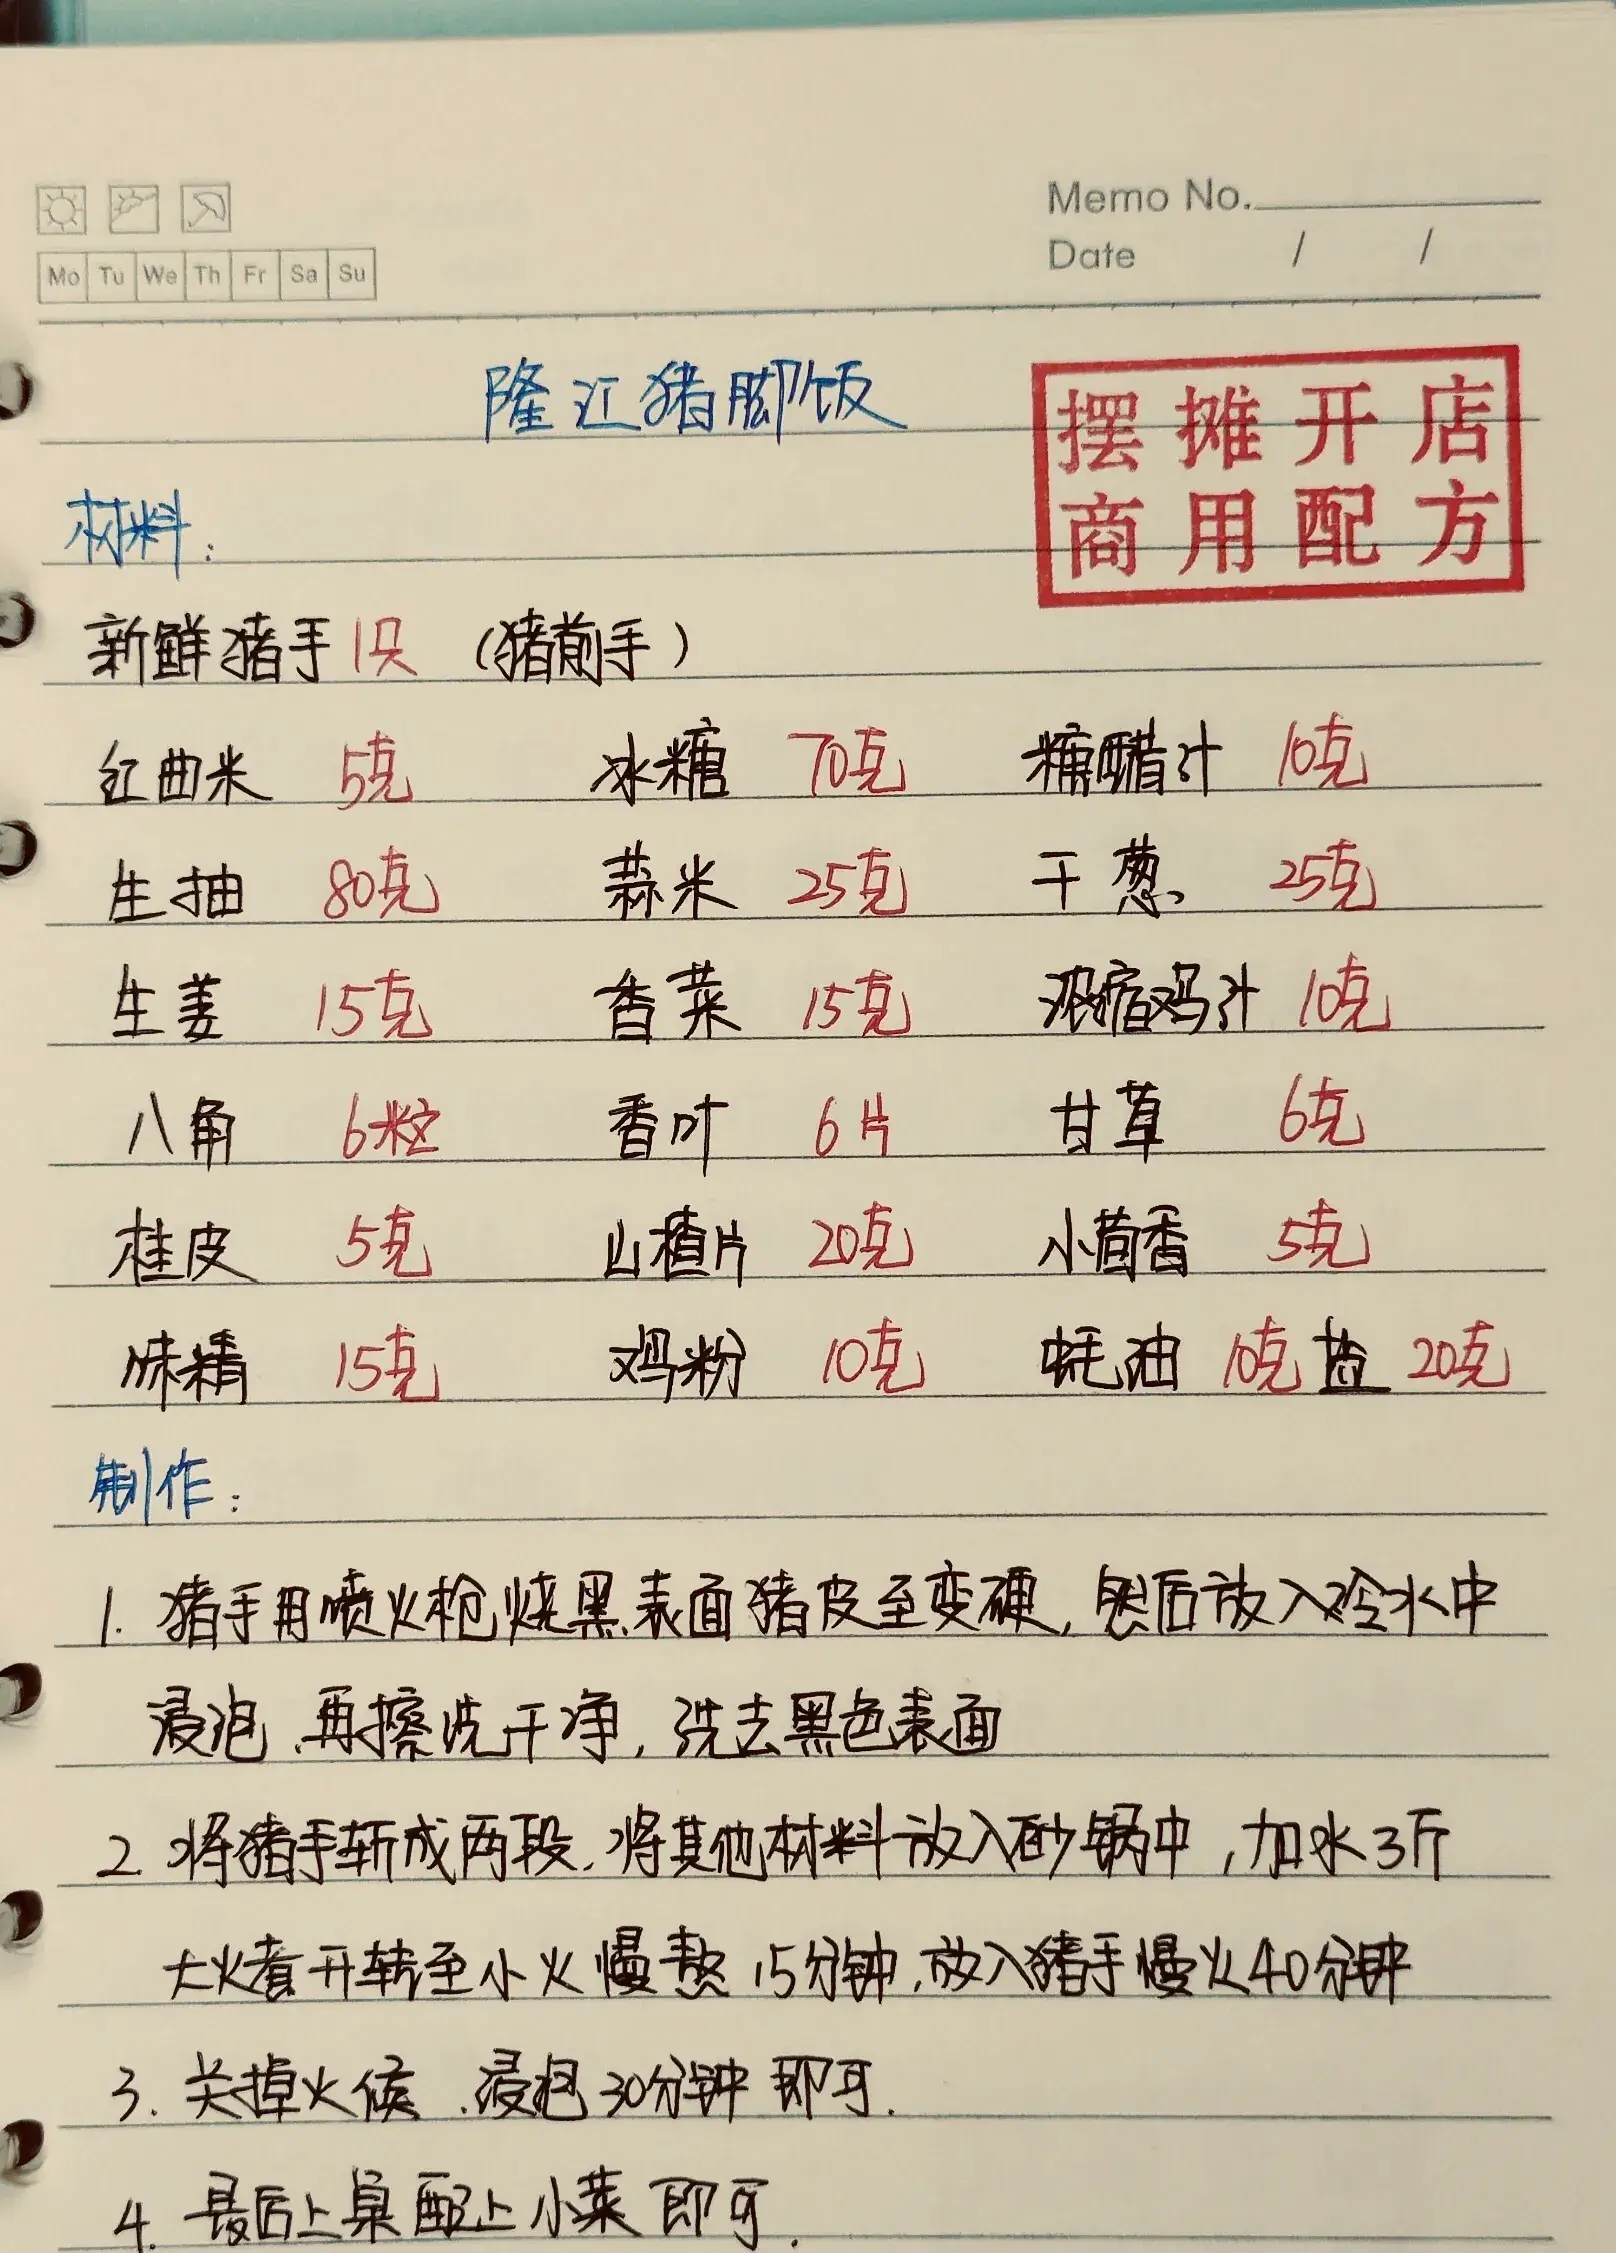 Memo No.
Date / /
Mo Tu We Th Fr Sa Su
隆江猪脚饭
摆摊开店
商用配方
材料:
新鲜猪手1只 (猪前手)
红曲米 5克 冰糖 70克 糖醋汁 10克
生抽 80克 蒜米 25克 干葱 25克
生姜 15克 香菜 15克 浓缩鸡汁 10克
八角 6粒 香叶 6片 甘草 6克
桂皮 5克 山楂片 20克 小茴香 5克
味精 15克 鸡粉 10克 蚝油 10克 盐 20克
制作:
1. 猪手用喷火枪烧黑表面猪皮至变硬,然后放入冷水中
浸泡,再擦洗干净,洗去黑色表面
2. 将猪手斩成两段,将其他材料放入砂锅中,加水3斤
大火煮开转至小火慢熬15分钟,放入猪手慢火40分钟
3. 关掉火候,浸泡30分钟即可.
4. 最后上桌配上小菜即可.